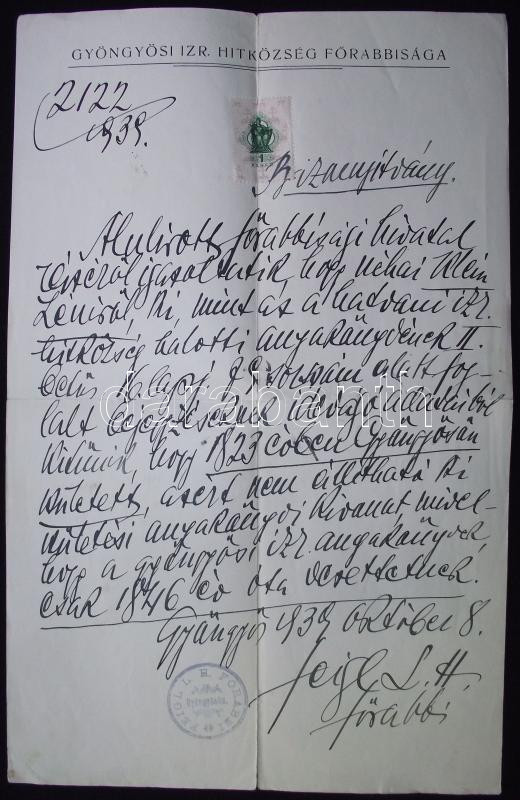 GYÖNGYÖSI IZR. HITKÖZSÉG FŐRABBISÁGA
2122
1939.
1
Bizonyitvány.
Alulirott főrabbisági hivatal
részéről igazoltatik, hogy néhai Klein
ki, mint az a hatvani izr.
hitközség halotti anyakönyvének II.
betüs 29 alatt fog-
lalt bejegyzésének adataiból
kitünik, hogy 1823 évben Gyöngyösön
született, azért nem állitható ki
születési anyakönyvi kivonat mivel-
hogy a gyöngyösi izr. anyakönyvek
csak 1846 év óta vezettetnek.
Gyöngyös 1939 október 8.
Feigl L. H.
főrabbi
FEIGL L. H. FŐRABBI
Gyöngyösön
darabanth